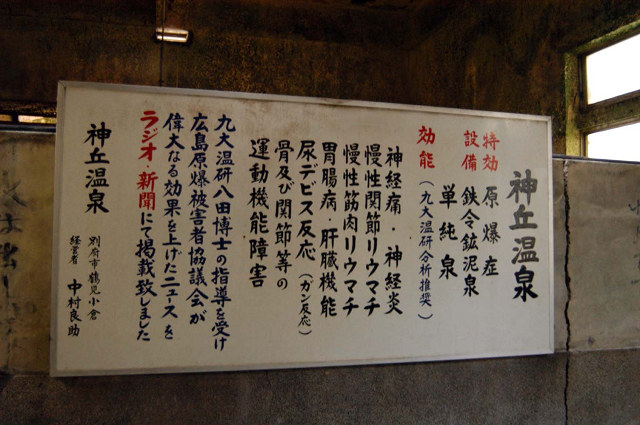 神丘温泉
特効 原爆症
設備 鉄令鉱泥泉
単純泉
効能(九大温研分析推奨)
神経痛・神経炎
慢性関節リウマチ
慢性筋肉リウマチ
胃腸病・肝臓機能
尿デビス反応(ガン反応)
骨及び関節等の
運動機能障害
九大温研八田博士の指導を受け
広島原爆被害者協議会が
偉大なる効果を上げたニュースを
ラジオ・新聞にて掲載致しました
神丘温泉
別府市鶴見小倉
経営者 中村良助